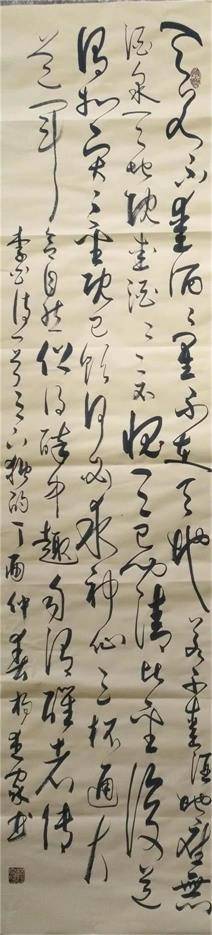 天若不爱酒〻星不在天地若不爱酒地应无
酒泉天地既爱酒〻〻不愧天已闻清比圣復道
浊如贤〻圣既已饮何必求神仙三杯通大
道一斗合自然但得醉中趣勿谓醒者传
李白诗一首月下独酌丁酉仲春